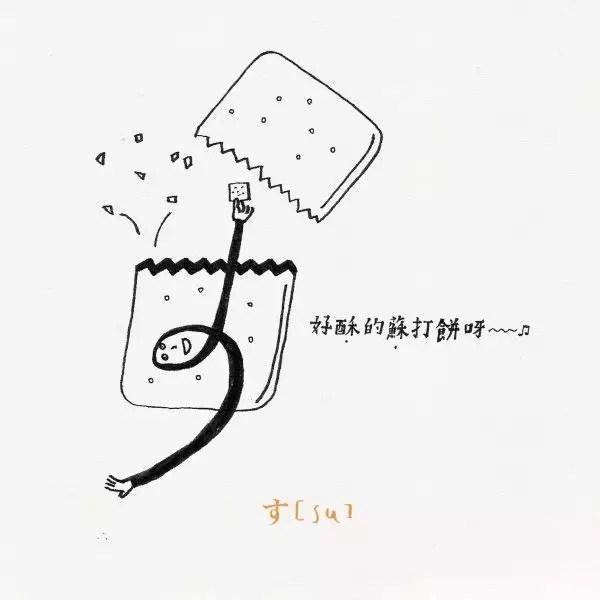 好酥的蘇打餅呀~~~♫
す[su]